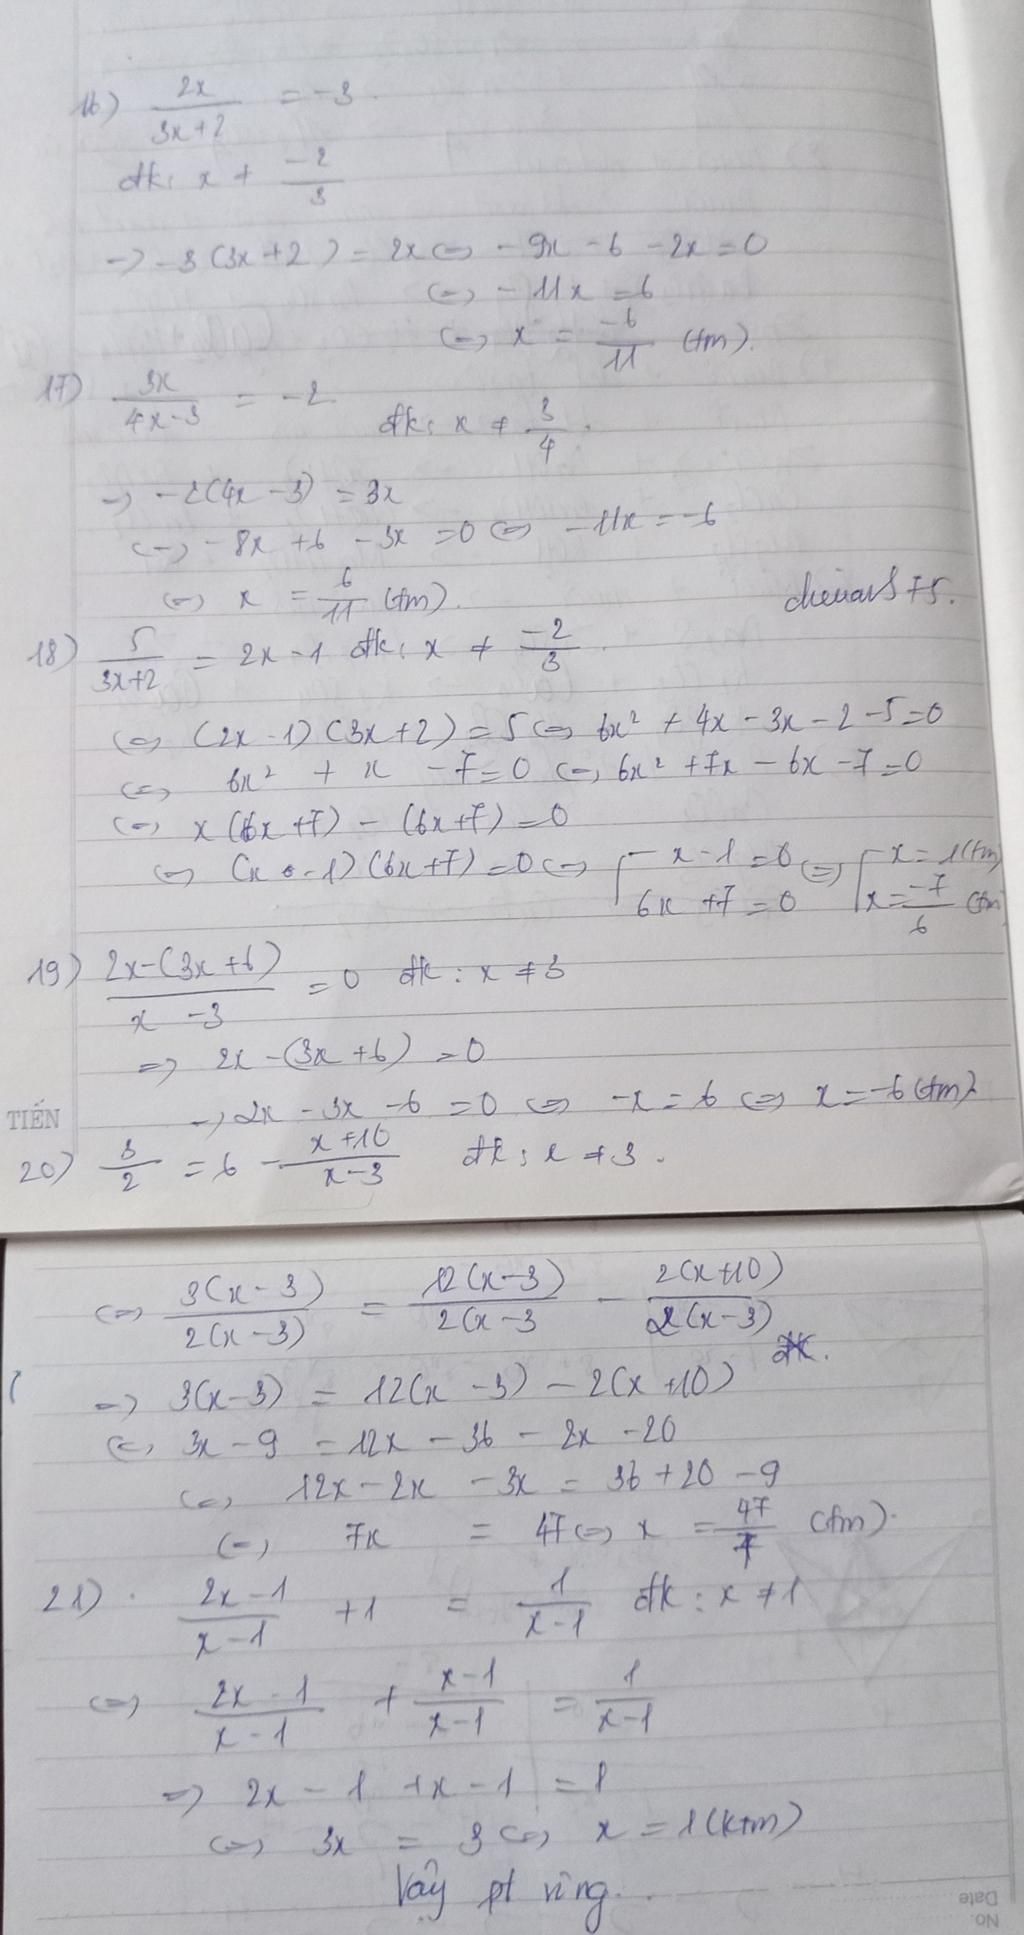 16) 2x/(3x+2) = -3
đk: x ≠ -2/3
=> -3(3x+2) = 2x <=> -9x - 6 - 2x = 0
<=> -11x = 6
<=> x = -6/11 (tm).
17) 3x/(4x-3) = -2. đk: x ≠ 3/4.
=> -2(4x-3) = 3x
<=> -8x + 6 - 3x = 0 <=> -11x = -6
<=> x = 6/11 (tm).
18) 5/(3x+2) = 2x - 1 đk: x ≠ -2/3.
<=> (2x-1)(3x+2) = 5 <=> 6x² + 4x - 3x - 2 - 5 = 0
<=> 6x² + x - 7 = 0 <=> 6x² + 7x - 6x - 7 = 0
<=> x(6x+7) - (6x+7) = 0
<=> (x-1)(6x+7) = 0 <=> [x-1 = 0 <=> [x = 1 (tm)
6x+7 = 0 x = -7/6 (tm)
19) (2x-(3x+6))/(x-3) = 0 đk: x ≠ 3
=> 2x-(3x+6) = 0
=> 2x - 3x - 6 = 0 <=> -x = 6 <=> x = -6 (tm)
TIẾN
20) 3/2 = 6 - (x+10)/(x-3) đk: x ≠ 3.
<=> 3(x-3)/2(x-3) = 12(x-3)/2(x-3 - 2(x+10)/2(x-3)
=> 3(x-3) = 12(x-3) - 2(x+10)
<=> 3x - 9 = 12x - 36 - 2x - 20
<=> 12x - 2x - 3x = 36 + 20 - 9
<=> 7x = 47 <=> x = 47/7 (tm).
21) (2x-1)/(x-1) + 1 = 1/(x-1) đk: x ≠ 1
<=> (2x-1)/(x-1) + (x-1)/(x-1) = 1/(x-1)
=> 2x - 1 + x - 1 = 1
<=> 3x = 3 <=> x = 1 (ktm)
Vậy pt
No.
Date